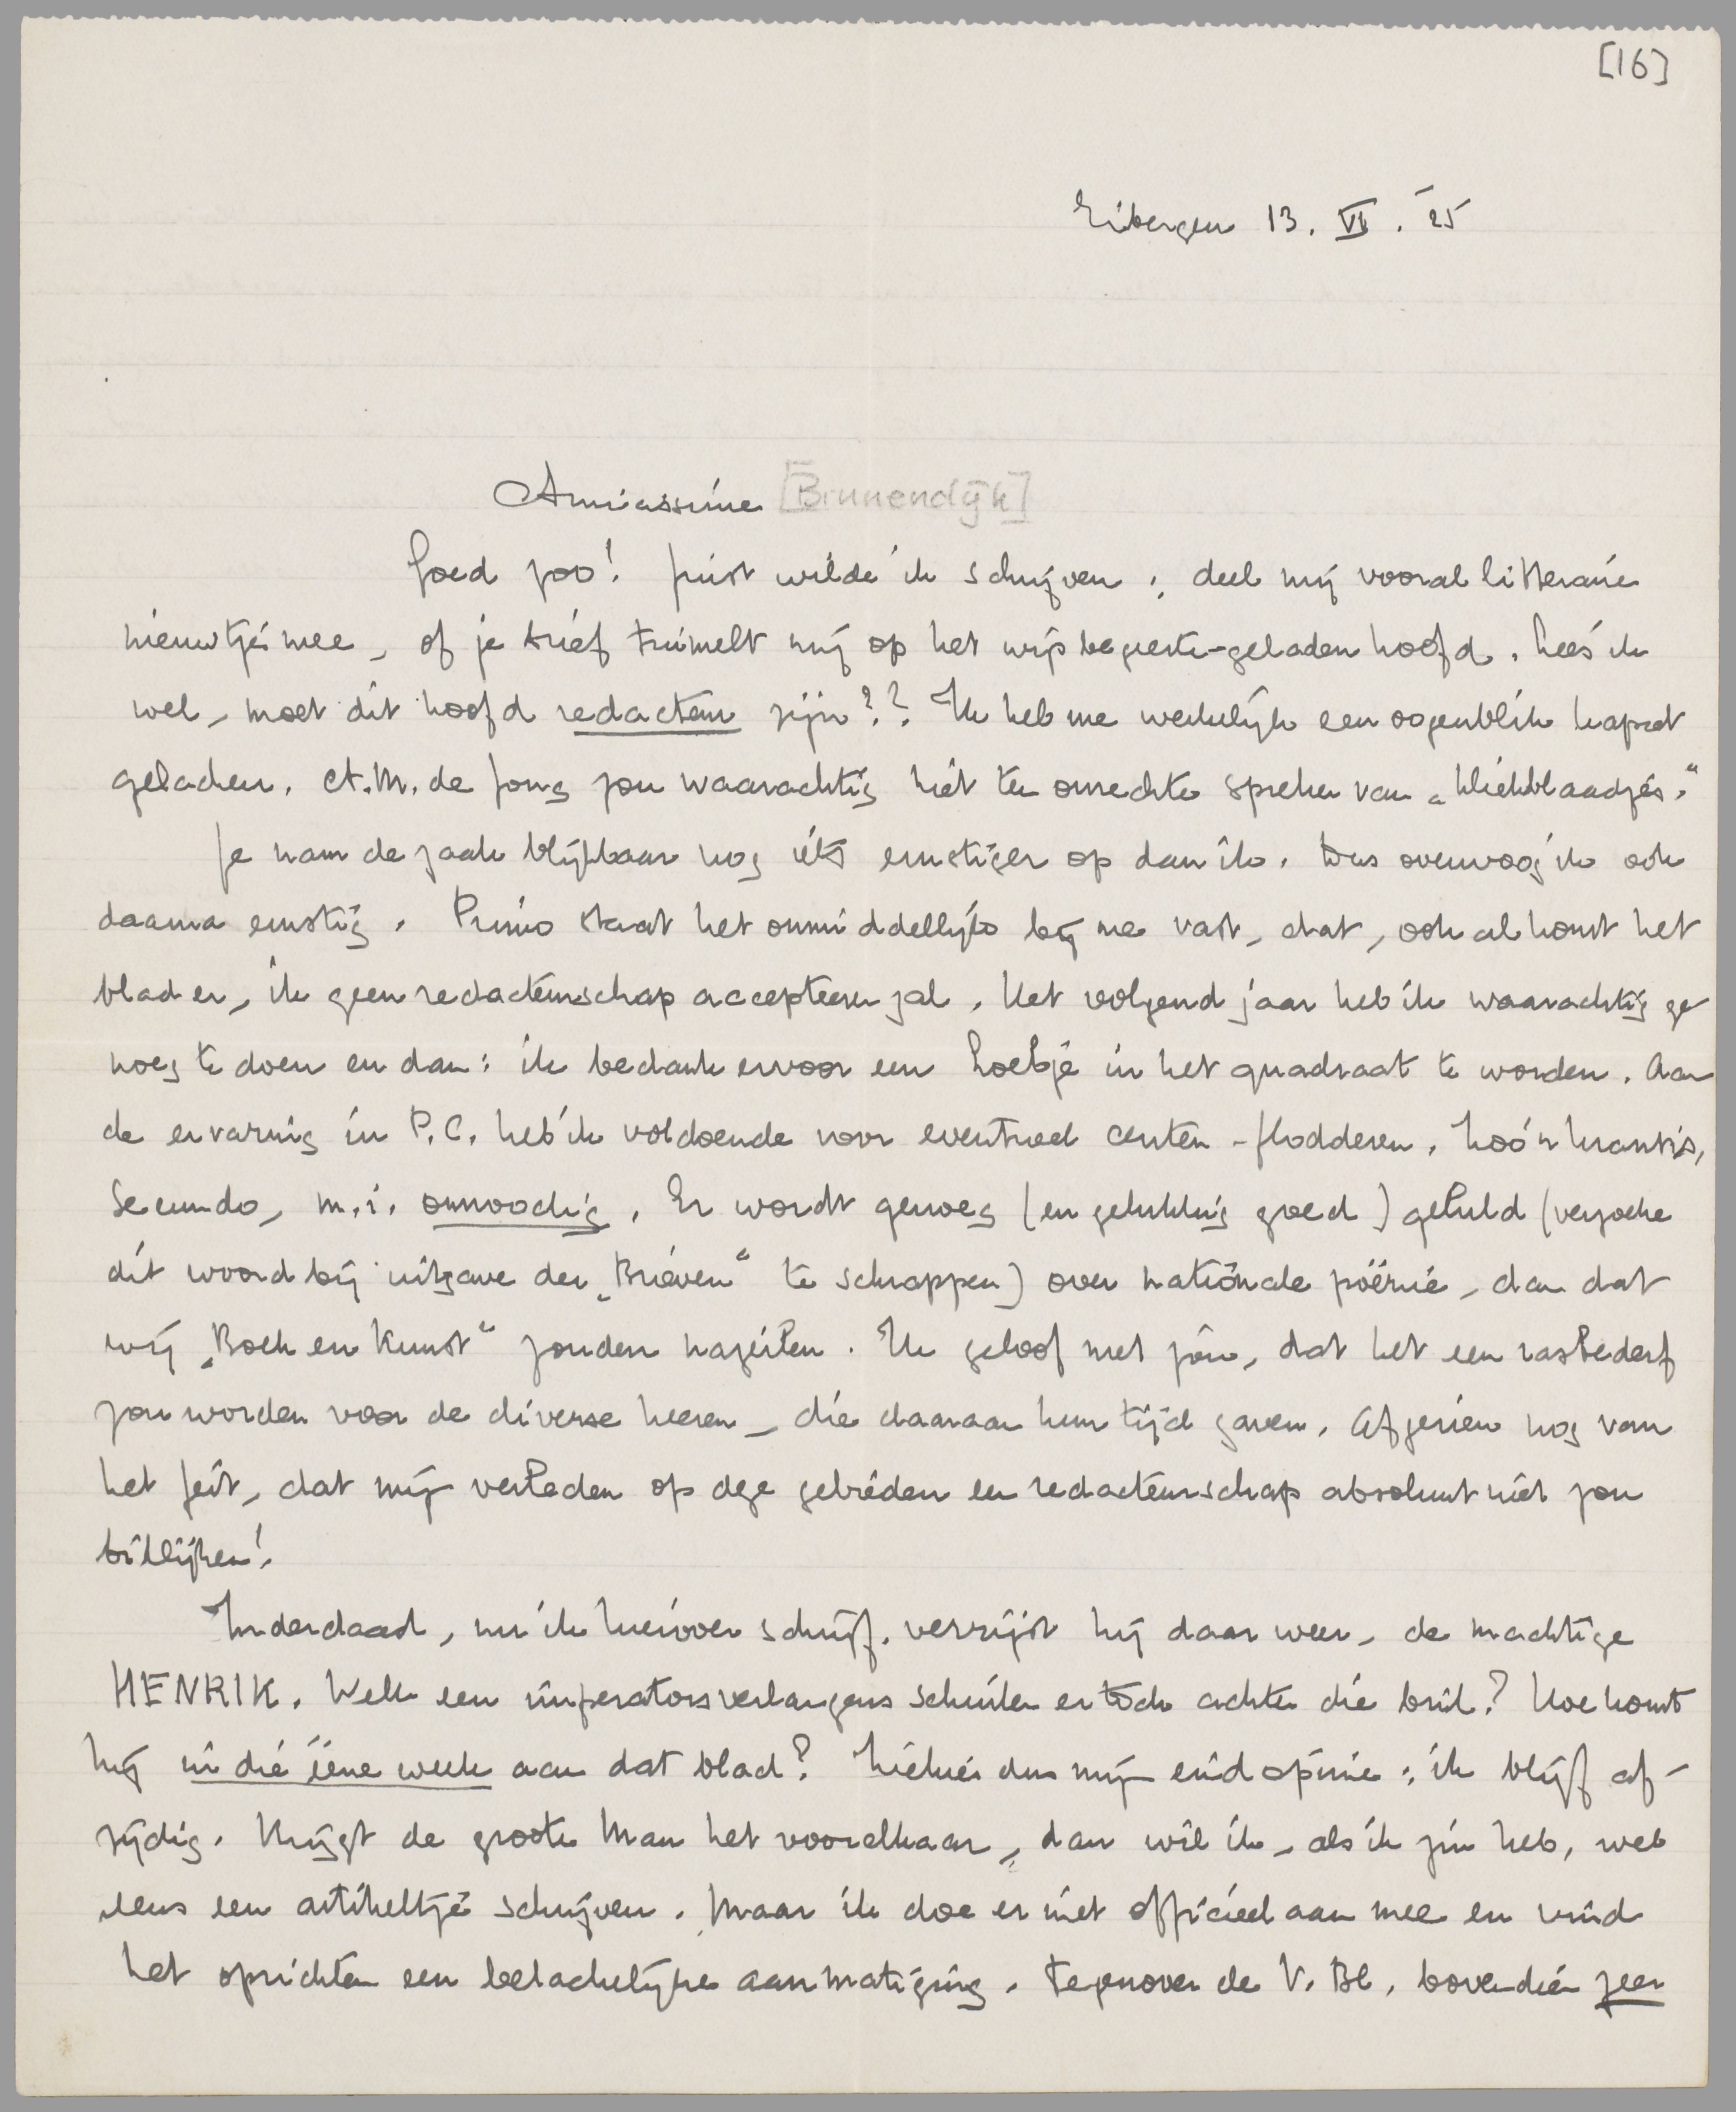 [16]
Eibergen 13. VI. '25
Amicissime [Binnendijk]
Goed zoo! Juist wilde ik schrijven: deel mij vooral litteraire
nieuwtjes mee, of je brief tuimelt mij op het wijsbegeerte-geladen hoofd. Lees ik
wel, moet dit hoofd redacteur zijn?? Ik heb me werkelijk een oogenblik kapot
gelachen. A.M. de Jong zou waarachtig niet ten onrechte spreken van „kliekblaadjes."
Je nam de zaak blijkbaar nog iets ernstiger op dan ik. Dus overwoog ik ook
daarna ernstig. Primo staat het onmiddellijk bij me vast, dat, ook al komt het
blad er, ik geen redacteurschap accepteeren zal. Het volgend jaar heb ik waarachtig ge
noeg te doen en dan: ik bedank ervoor een Loebje in het quadraat te worden. Aan
de ervaring in P.C. heb ik voldoende voor eventueel centen-flodderen.
Secundo, m.i. onnoodig. Er wordt genoeg (en gelukkig goed) geluld (verzoeke
dit woord bij uitgave der „Brieven" te schrappen) over nationale poëzie, dan dat
wij „Boek en Kunst" zouden nazeilen. Ik geloof niet, Jôn, dat het een tasbederf
zou worden voor de diverse heeren, die daaraan hun tijd gaven. Afgezien nog van
het feit, dat mijn verleden op deze gebieden een redacteurschap absoluut niet zou
billijken!
Inderdaad, nu ik hierover schrijf, verrijst hij daar weer, de machtige
HENRIK. Welk een imperatorsverlangens schuilen er toch achter die bril? Hoe komt
hij in die ééne week aan dat blad? Ziehier dus mijn eindopinie: ik blijf af-
zijdig. Krijgt de groote Man het voorelkaar, dan wil ik, als ik zin heb, wel
eens een artikeltje schrijven. Maar ik doe er niet officieel aan mee en vind
het oprichten een belachelijke aanmatiging. Tegenover de V. Bl. bovendien zeer